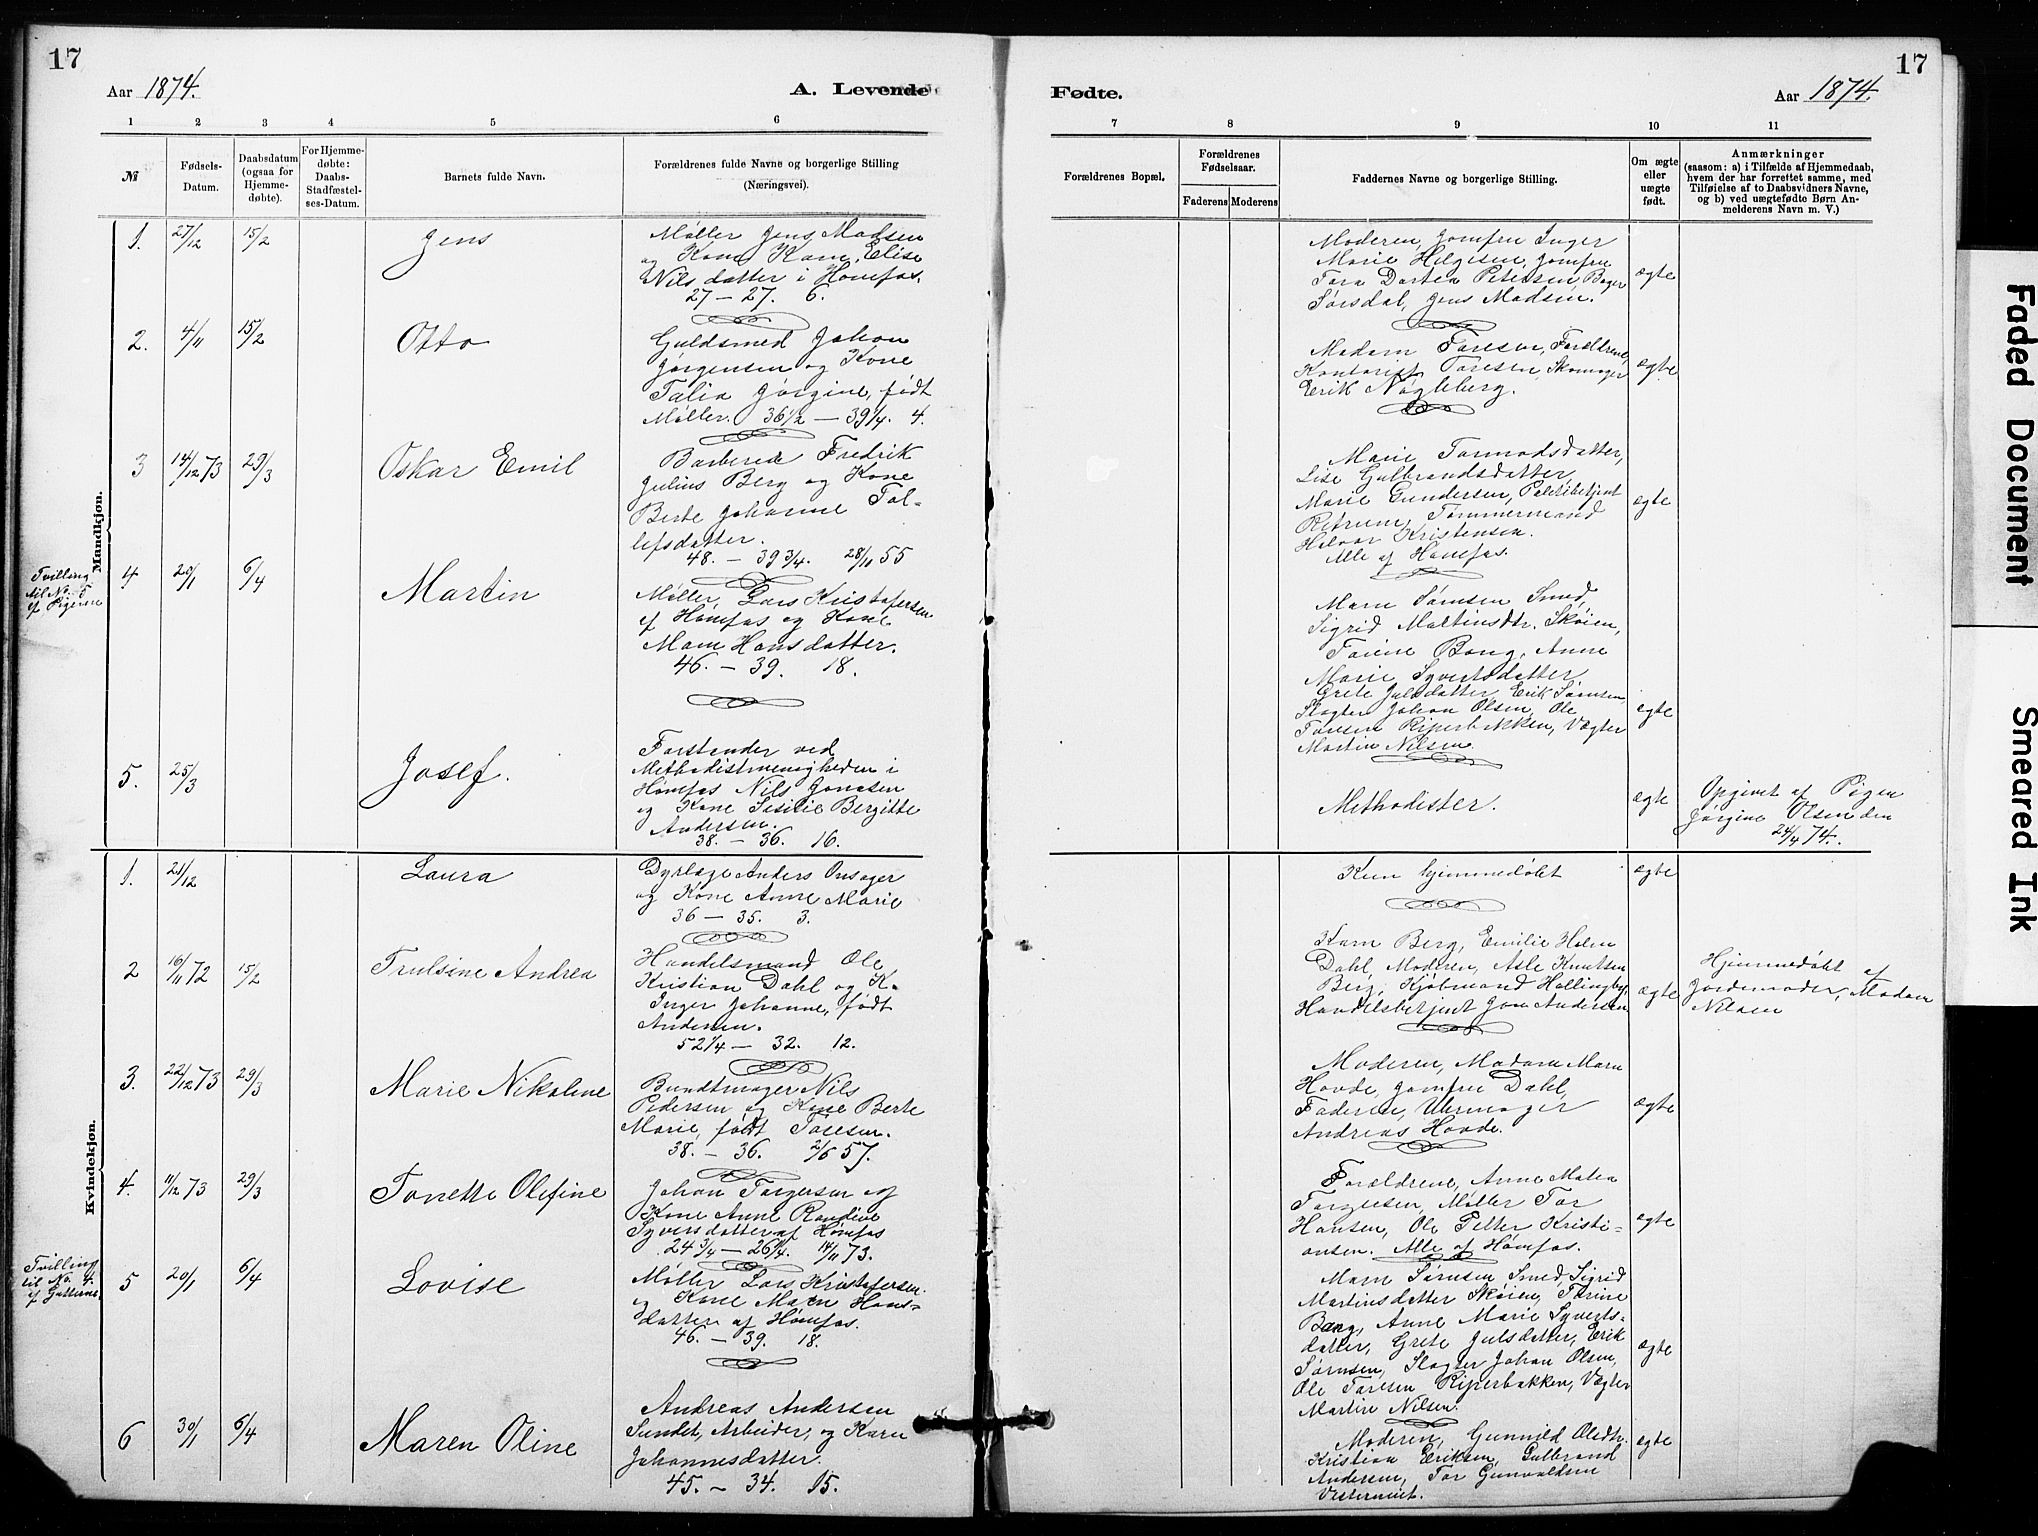 17
Aar 1874.
A. Levende
1 2 3 4 5 6
№
Fødsels-
Datum.
Daabsdatum
(ogsaa for
Hjemme-
døbte).
For Hjemme-
døbte:
Daabs-
Stadfæstel-
ses-Datum.
Barnets fulde Navn.
Forældrenes fulde Navne og borgerlige Stilling
(Næringsvei).
Mandkjøn.
1. 27/12 15/2 Jens
Møller Jens Madsen
og Kone Elise
Nilsdatter i Hønefos.
27 — 27. 6.
2. 4/11 15/2 Otto
Guldsmed Johan
Jørgensen og Kone
Talia Jørgine, født
Møller. 36 1/2 — 39 1/4. 4.
3 14/12 73 29/3 Oskar Emil
Barberer Fredrik
Julius Berg og Kone
Berte Johanne Tol-
lefsdatter.
48. — 39 3/4. 28/11 55
Tvilling
til No. 5
af Pigerne
4. 20/1 6/4 Martin
Møller Lars Kristofersen
af Hønefos og Kone
Maren Hansdatter.
46. — 39. 18.
5. 25/3 Josef.
Forstander ved
Methodistmenigheden i
Hønefos Nils Jonasen
og Kone Sesilie Bergitte
Andersen.
38. — 36. 16.
Kvindekjøn.
1. 21/12 Laura
Dyrlæge Anders Onsager
og Kone Anne Marie
36 — 35. 3.
2 16/11 72 15/2 Trulsine Andrea
Handelsmand Ole
Kristian Dahl og K.
Inger Johanne, født
Andersen.
52 1/4 — 32. 12.
3. 22/12 73 29/3 Marie Nikoline
Bundtmager Nils
Pedersen og Kone Berte
Marie, født Toresen.
38. — 36. 2/6 57.
4. 11/12 73 29/3 Tonette Olefine
Johan Torgersen og
Kone Anne Randine
Syversdatter af Hønefos
24 3/4 — 26 1/4. 14/11 73.
Tvilling
til No. 4.
af Gutterne.
5 20/1 6/4 Lovise
Møller Lars Kristofersen
og Kone Maren Hans-
datter af Hønefos.
46. — 39. 18.
6 30/1 6/4 Maren Oline
Andreas Andersen
Sundet, Arbeider, og Karen
Johannesdatter.
45. — 34. 15.
17
Fødte.
Aar 1874.
7 8 9 10 11
Forældrenes Bopæl.
Forældrenes
Fødselsaar.
Faderens Moderens
Faddernes Navne og borgerlige Stilling.
Om ægte
eller
uægte
født.
Anmærkninger
(saasom: a) i Tilfælde af Hjemmedaab,
hvem der har forrettet samme, med
Tilføielse af to Daabsvidners Navne,
og b) ved uægtefødte Børn An-
melderens Navn m. V.)
Moderen, Jomfru Inger
Marie Helgesen, Jomfru
Tora Dortea Petersen, Bager
Sørsdal, Jens Madsen.
ægte
Madam Toresen, Forældrene,
Kontorist Toresen, Skomager
Erik Nøgleberg.
ægte
Marie Tormodsdatter,
Lise Gulbrandsdatter
Marie Gundersen, Politibetjent
Retrum, Tømmermand
Halvor Kristensen.
Alle af Hønefos.
ægte
Maren Sørnsen Smed,
Sigrid Martinsdtr. Skøien,
Torine Bang, Anne
Marie Syvertsdatter
Grete Julsdatter, Erik Sørnsen,
Slagter Johan Olsen, Ole
Toresen Riperbakken, Vægter
Martin Nilsen.
ægte
Methodister.
ægte
Opgivet af Pigen
Jørgine Olsen den
24/4 74.
Kun hjemmedøbt
ægte
Karn Berg, Emilie Helen
Dahl, Moderen, Asle Knutsen
Berg, Kjøbmand Hollingby,
Handelsbetjent Jon Andersen
ægte
Hjemmedøbt af
Jordemoder, Madam
Nilsen
Moderen, Madam Maren
Hovde, Jomfru Dahl,
Faderen, Uhrmager
Andreas Hovde.
ægte
Forældrene, Anne Matea
Torgersen, Møller Tor
Hansen, Ole Petter Kristi-
ansen. Alle af Hønefos.
ægte
Maren Sørnsen Smed, Sigrid
Martinsdatter Skøien, Torine
Bang, Anne Marie Syverts-
datter, Grete Julsdatter, Erik
Sørnsen, Slagter Johan Olsen,
Ole Toresen Riperbakken, Vægter
Martin Nilsen.
ægte
Moderen, Gunnild Olsdtr.
Kristian Eriksen, Gulbrand
Andersen, Tor Gunvaldsen
ægte
Faded Document
Smeared Ink